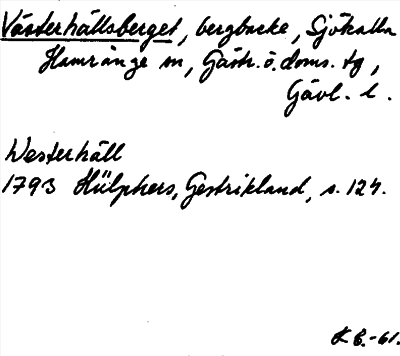 Västerhällsberget, bergbacke, Sjökalla
Hamrånge sn, Gästr. ö. doms. tg,
Gävl. l.
Westerhäll
1793 Hülphers, Gestrikland, s. 124.
K B.-61.